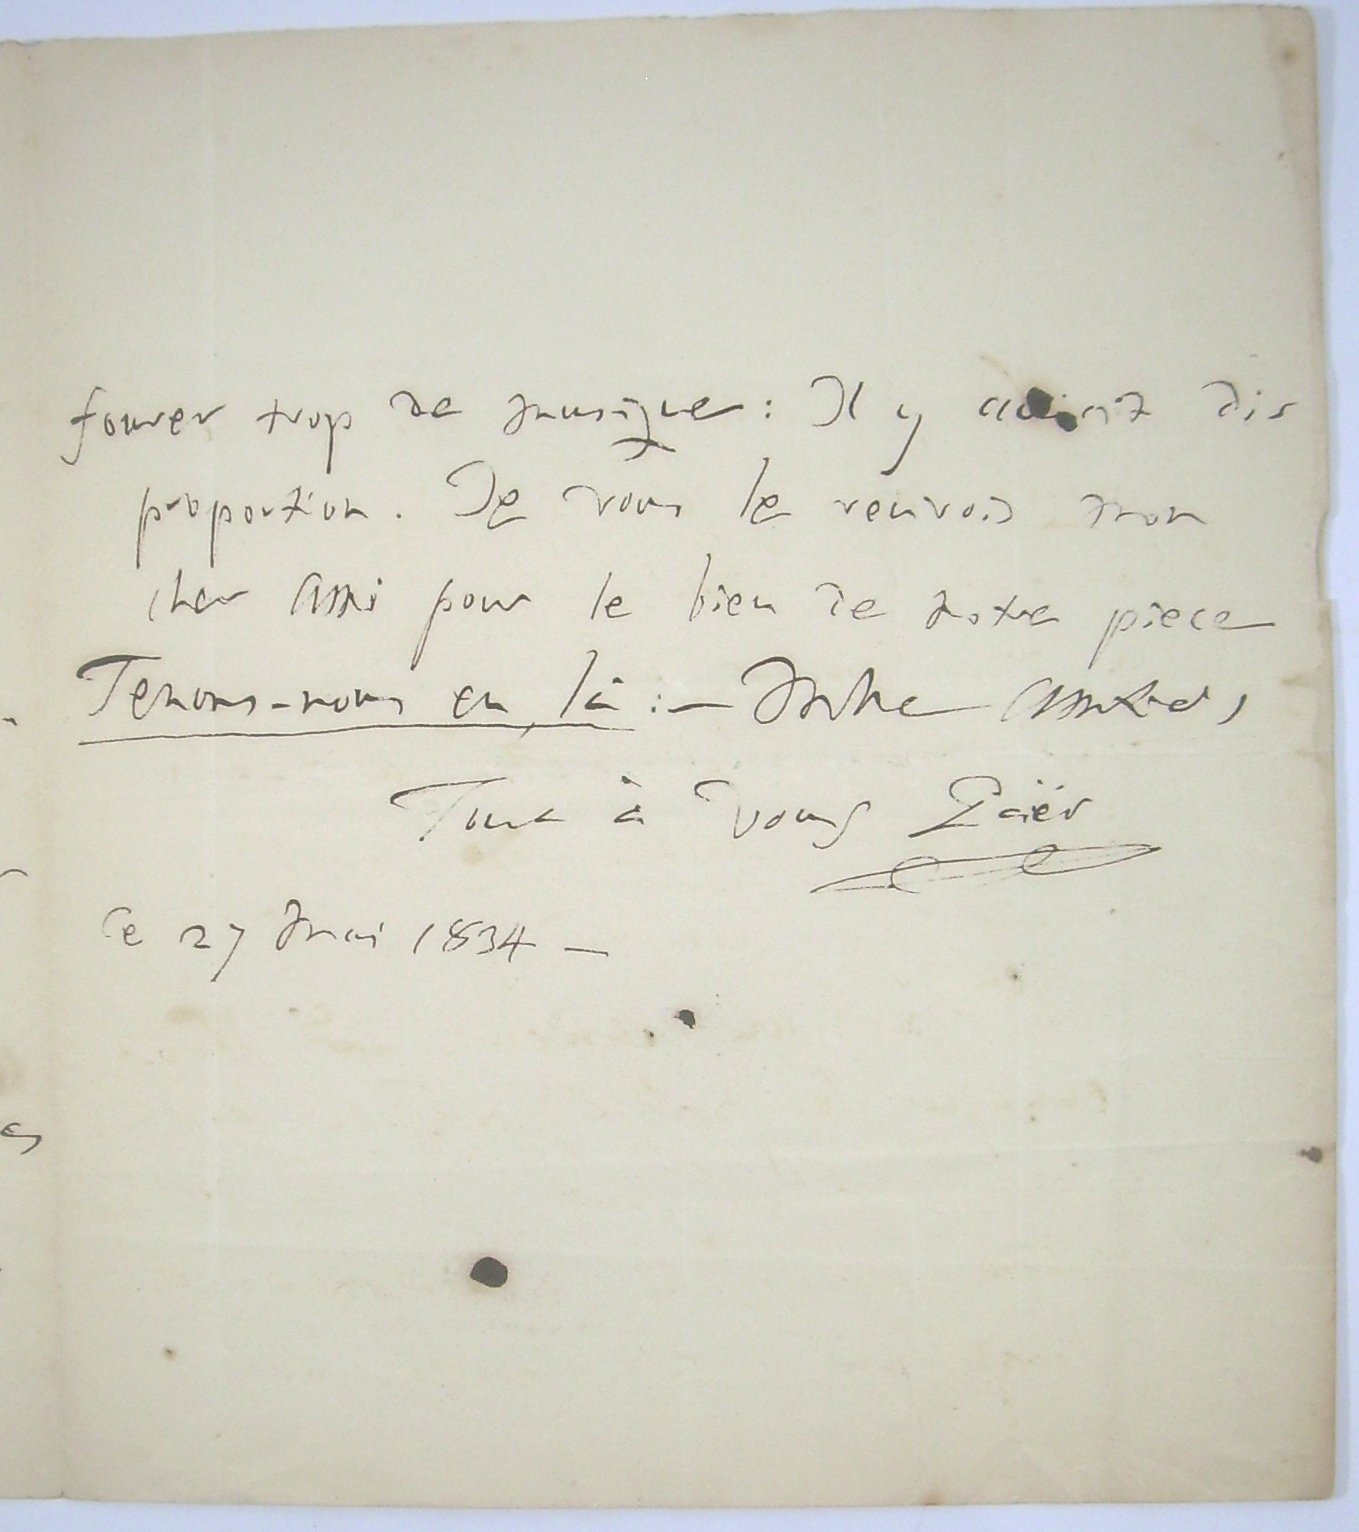 fourer trop de musique : Il y dis
proportion. Je vous le renvois mon
cher Ami pour le bien de notre piece
Tenons-nous en là : — Mille Amitiés,
Tout à vous Paër
Ce 27 Mai 1834 —